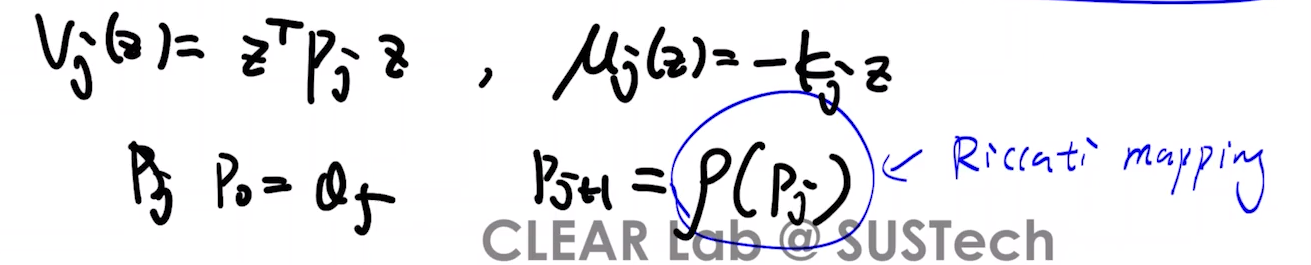 V_j(z) = z^T P_j z , μ_j(z) = -K_j z
P_j P_0 = Q_f P_{j+1} = ρ(P_j) ← Riccati mapping
CLEAR Lab @ SUSTech